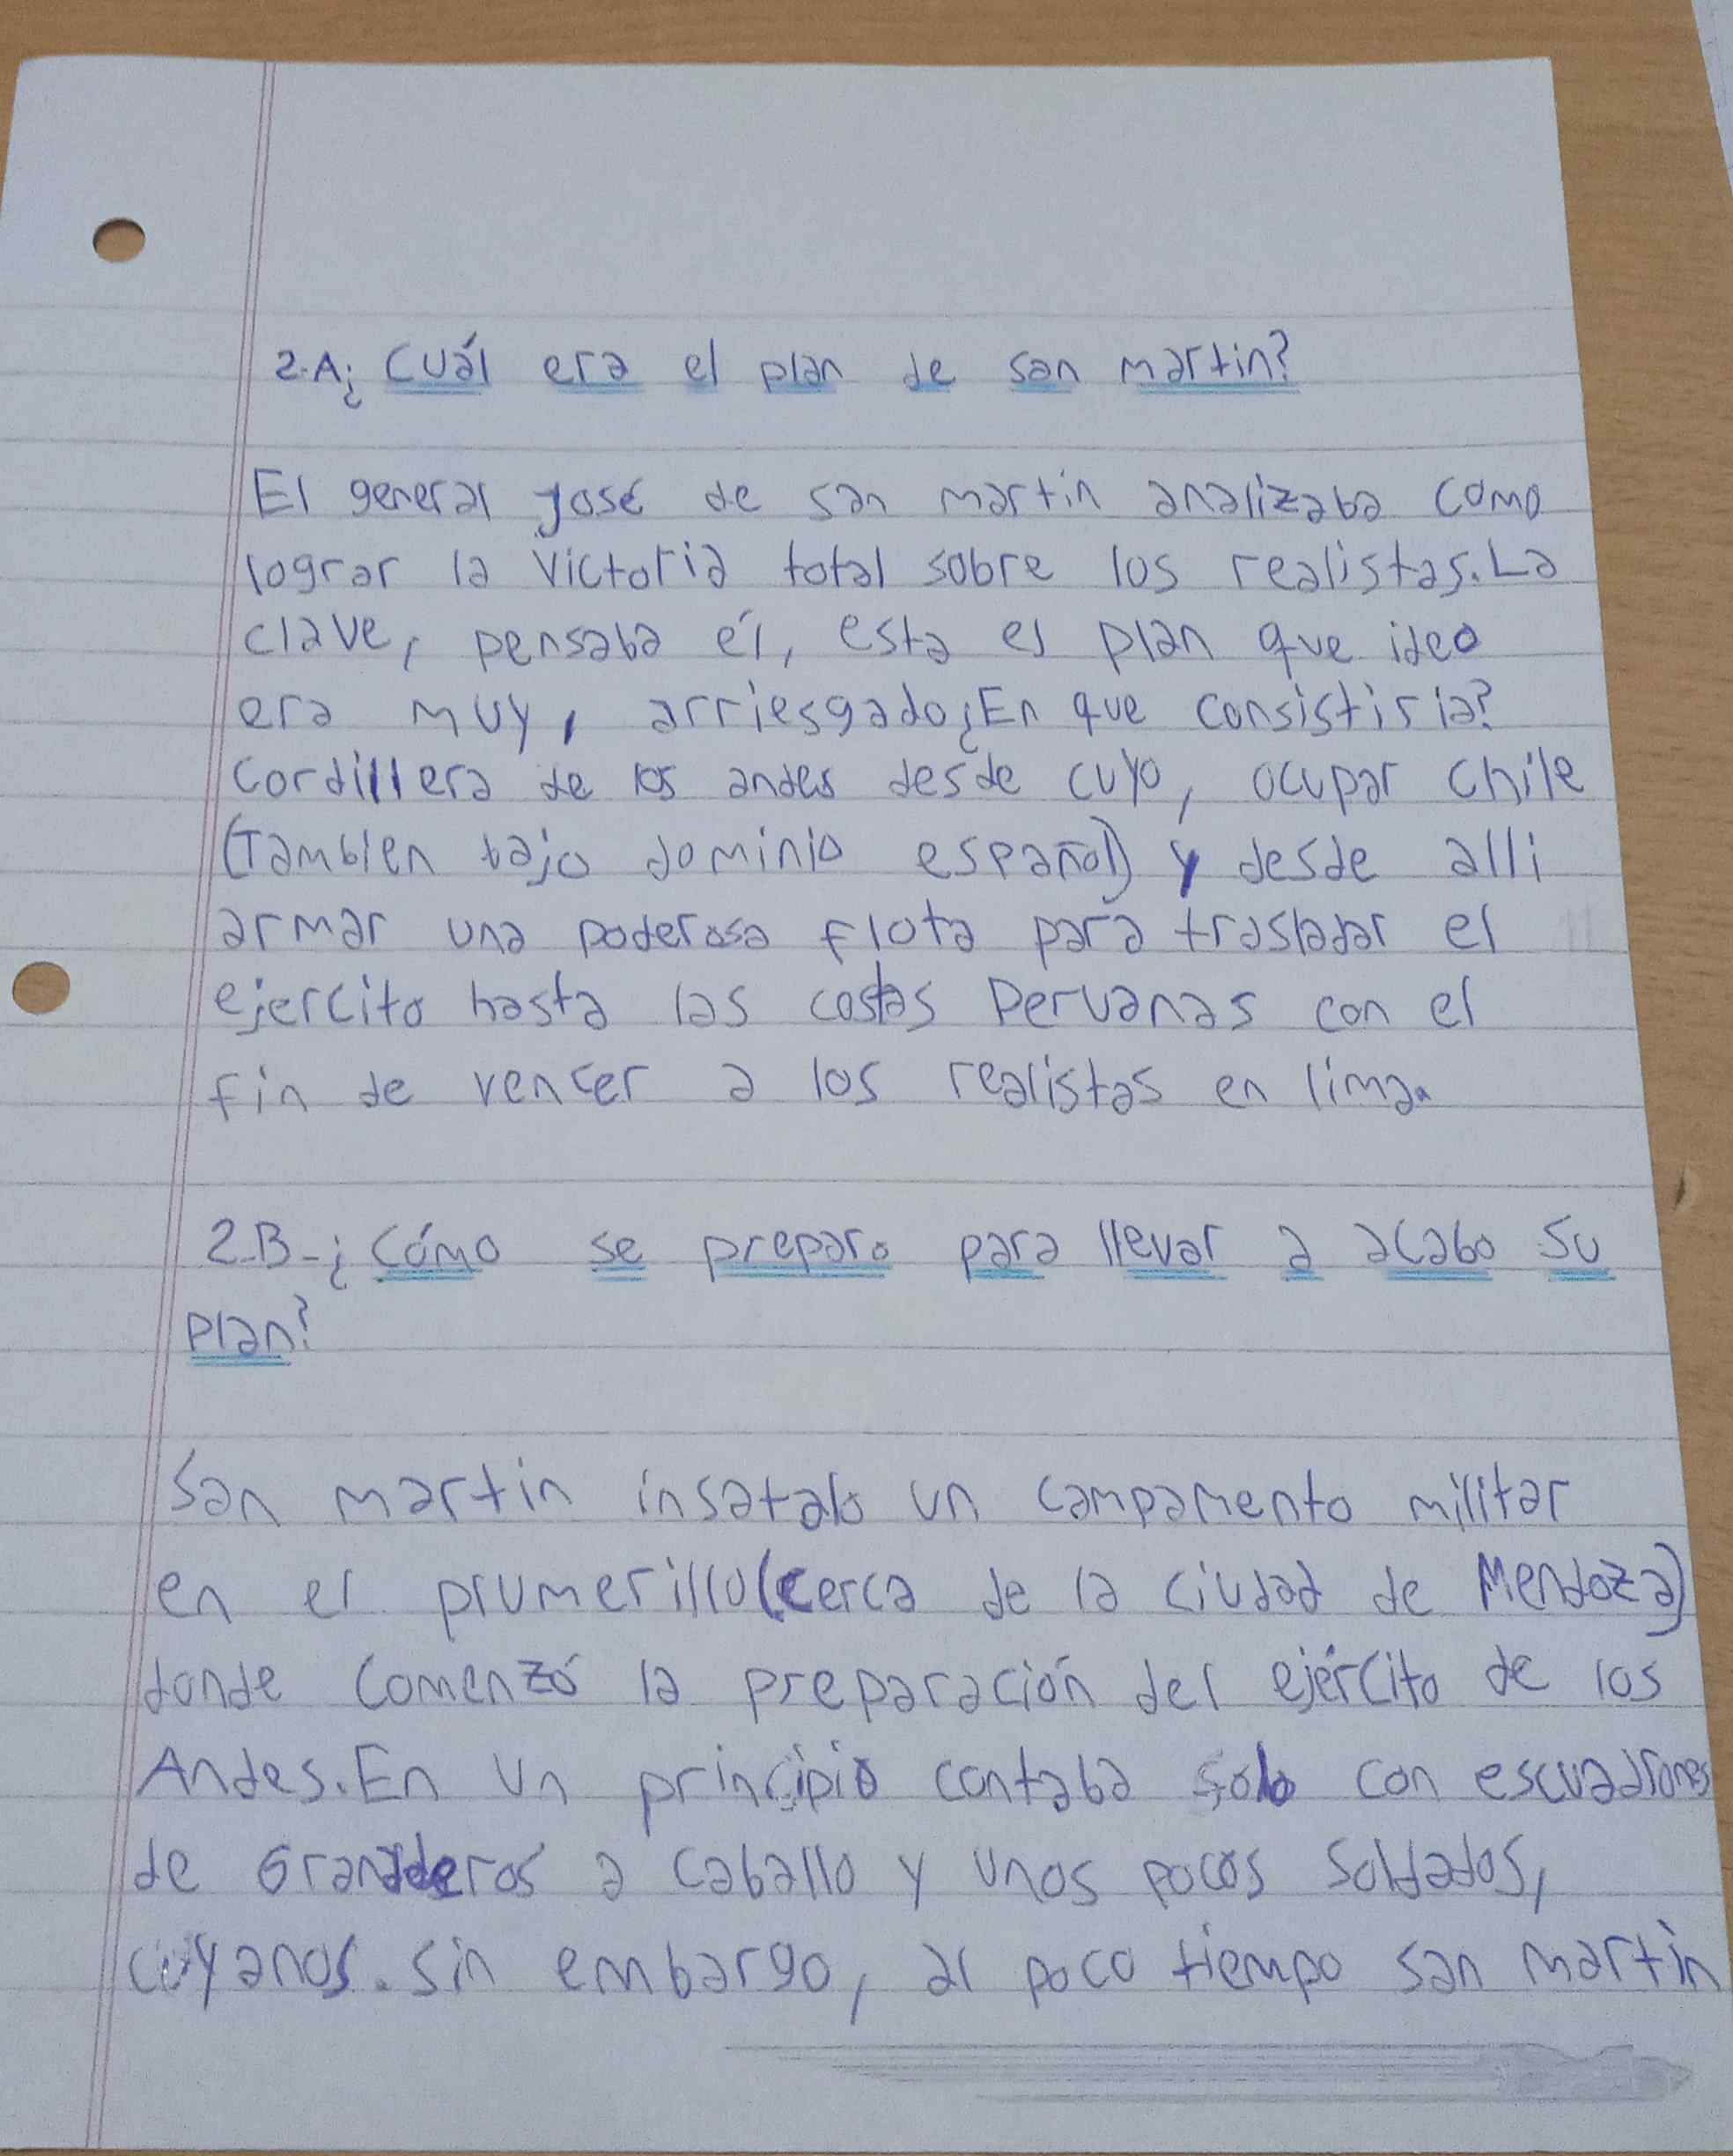 2.A¿ Cuál era el plan de san martin?
El general José de san martin analizaba como
lograr la victoria total sobre los realistas. La
clave, pensaba él, esta el plan que ideo
era muy, arriesgado ¿En que consistiria?
Cordillera de los andes desde cuyo, ocupar chile
(Tambien bajo dominio español) y desde alli
armar una poderosa flota para trasladar el
ejercito hasta las costas Peruanas con el
fin de vencer a los realistas en lima.
2.B-¿Cómo se preparo para llevar a acabo su
plan?
San martin insatalo un campamento militar
en el plumerillo (cerca de la ciudad de Mendoza)
donde comenzó la preparación del ejército de los
Andes. En un principio contaba solo con escuadrones
de Granaderos a caballo y unos pocos soldados,
cuyanos. sin embargo, al poco tiempo san martin